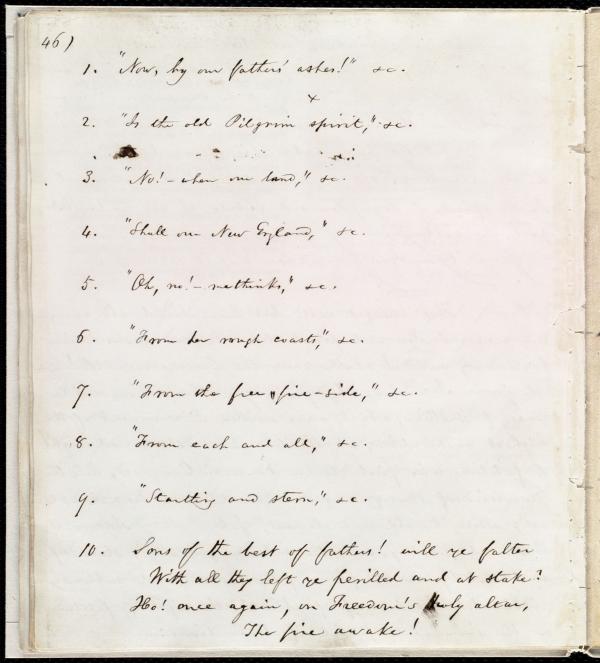 46)
1. "Now, by our fathers' ashes!" &c.
x
2. "Is the old Pilgrim spirit," &c.
3. "No! - when our land," &c.
4. "Shall our New England," &c.
5. "Oh, no! - methinks," &c.
6. "From her rough coasts," &c.
7. "From the free fire-side," &c.
8. "From each and all," &c.
9. "Startling and stern," &c.
10. Sons of the best of fathers! will ye falter
With all they left ye perilled and at stake?
Ho! once again, on Freedom's holy altar,
The fire awake!